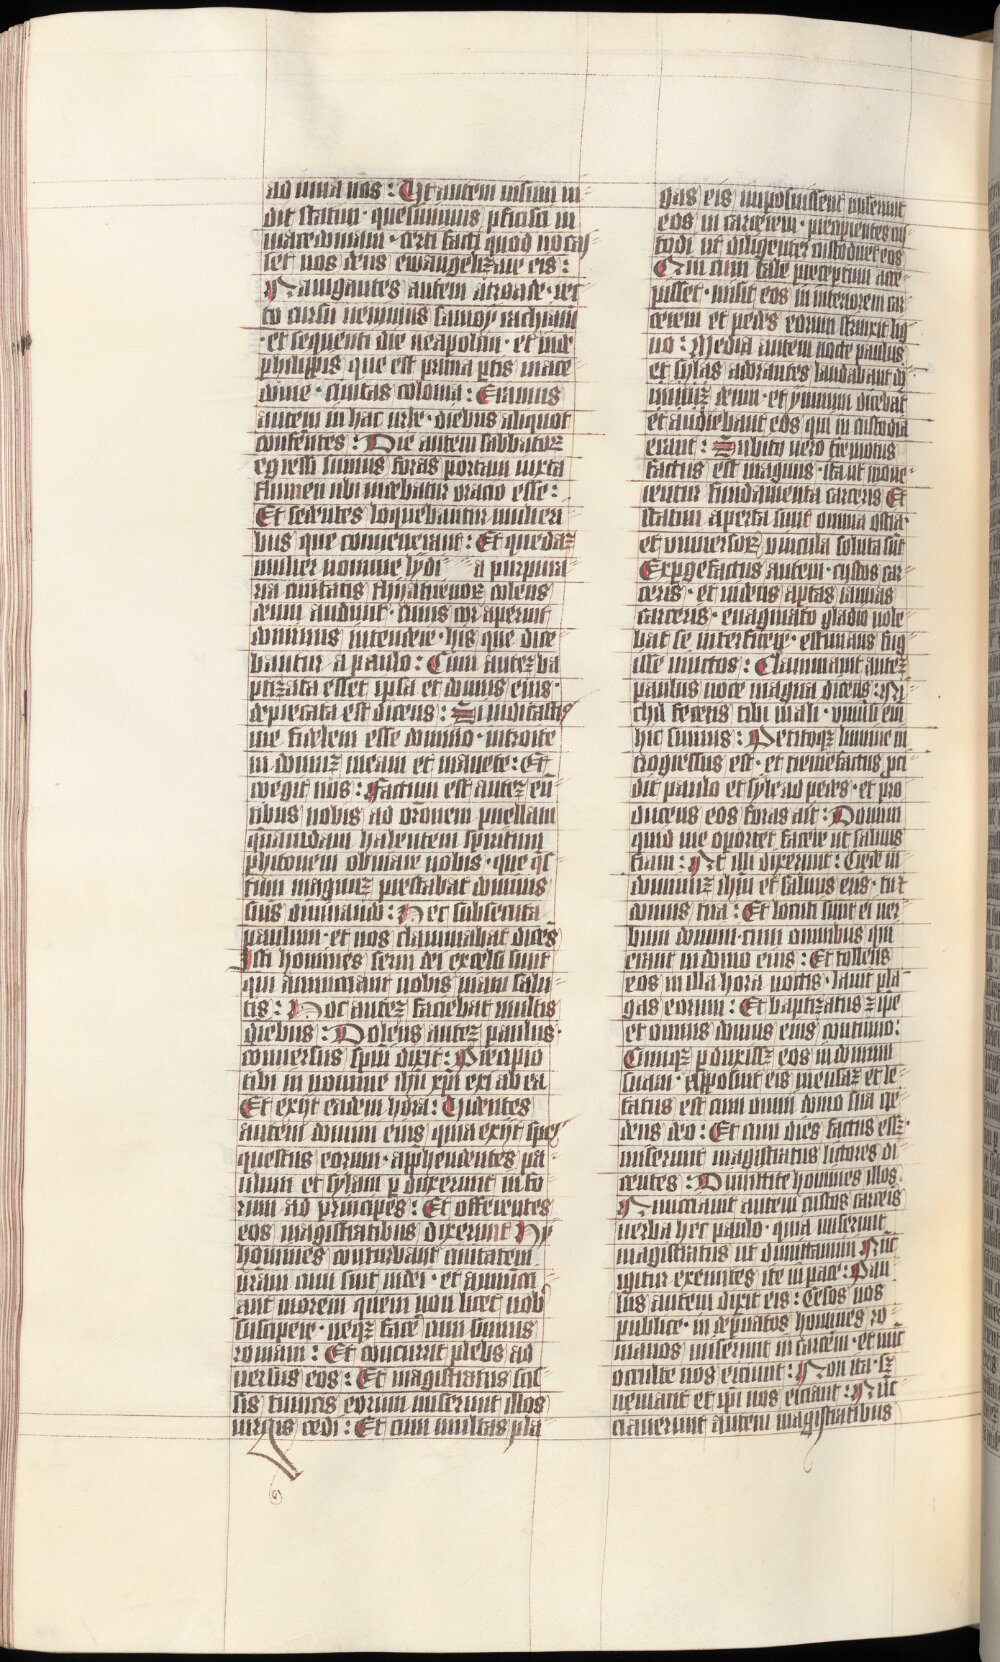 ad iuva nos : Ut autem visum vi
dit statim · quesivimus pficisci in
macedoniam · certi facti quod vocas
set nos deus ewangelizare eis :
Navigantes autem atroade · rec
to cursu venimus samon trachiam
· et sequenti die neapolim · et inde
philippis que est prima ptis mace
donie · civitas colonia : Eramus
autem in hac urbe · diebus aliquot
consentes : Die autem sabbatorz
egressi sumus foras portam iuxta
flumen ubi videbatur oracio esse :
Et sedentes loquebamur mulieri
bus que convenerant : Et quedaz
mulier nomine lydi a purpura
ria civitatis thyatirenorz colens
deum audivit · cuius cor aperuit
dominus intendere · his que dice
bantur a paulo : Cum autez ba
ptizata esset ipsa et domus eius ·
deprecata est dicens : Si iudicastis
me fidelem esse domino · introite
in domuz meam et manete : Et
coegit nos : Factum est autez eū
tibus nobis ad orōnem puellam
quamdam habentem spiritum
phitonem obviare nobis · que qs
tum magnuz prestabat dominis
suis divinando : Hec subsecuta
paulum · et nos clamabat dicēs
Isti homines servi dei excelsi sunt
qui annunciant vobis viam salu
tis : Hoc autez faciebat multis
diebus : Dolens autez paulus ·
conversus spūi dixit : Precipio
tibi in nomine ihū xpī exi ab ea
Et exijt eadem hora : Videntes
autem domini eius quia exijt spes
questus eorum · apphendentes pa
ulum et sylam p duxerunt in fo
rum ad principes : Et offerentes
eos magistratibus dixerunt Hij
homines conturbant civitatem
vrām cum sint iudei · et annunci
ant morem quem non licet nob
suscipere · neqz facē cum simus
romani : Et concurrit plebs ad
versus eos : Et magistratus scis
sis tunicis eorum iusserunt illos
virgis cedi : Et cum multas pla
gas eis imposuissent miserunt
eos in carcerem · precipientes cus
todi ut diligenter custodiret eos
Qui cum tale preceptum acce
pisset · misit eos in interiorem car
cerem et pedes eorum strinxit lig
no : Media autem nocte paulus
et sylas adorantes laudabant do
et ymnum dicebāt
et audiebant eos qui in custodia
erant : Subito vero terremotus
factus est magnus · ita ut move ·
rentur fundamenta carceris Et
statim aperta sunt omnia ostia ·
et universorz vincula soluta sūt
Expgefactus autem · custos car
ceris · et videns aptas ianuas
carceris · evaginato gladio vole
bat se interficere · estimans fug
isse vinctos : Clammavit autez
paulus voce magna dicens : Ni
chil feceris tibi mali · universi eni
hic sumus : Petitoqz lumine in
trogressus est · et tremefactus pci
dit paulo et syle ad pedes · et pro
ducens eos foras ait : Domini
quid me oportet facere ut salvus
fiam : At illi dixerunt : Crede in
dominuz ihūm et salvus eris · tu et
domus tua : Et locuti sunt ei ver
bum domini · cum omnibus qui
erant in domo eius : Et tollens
eos in illa hora noctis · lavit pla
gas eorum : Et baptizatus z ipe
et omnis domus eius continuo :
Cumqz p duxissz eos in domum
suam · apposuit eis mensaz et le
tatus est cum omni domo sua cre
dens deo : Et cum dies factus essz ·
miserunt magistratus lictores di
centes : Dimittite homines illos
Nunciavit autem custos carceris
verba hec paulo · quia miserunt
magistratus ut dimittamini Nūc
igitur exeuntes ite in pace : Pau
lus autem dixit eis : Cesos nos
publice · in dempnatos homines ro
manos miserunt in carcēm · et nūc
occulte nos eiciunt : Non ita · sz
veniant et ipī nos eiciant : Nūc
ciaverunt autem magistratibus